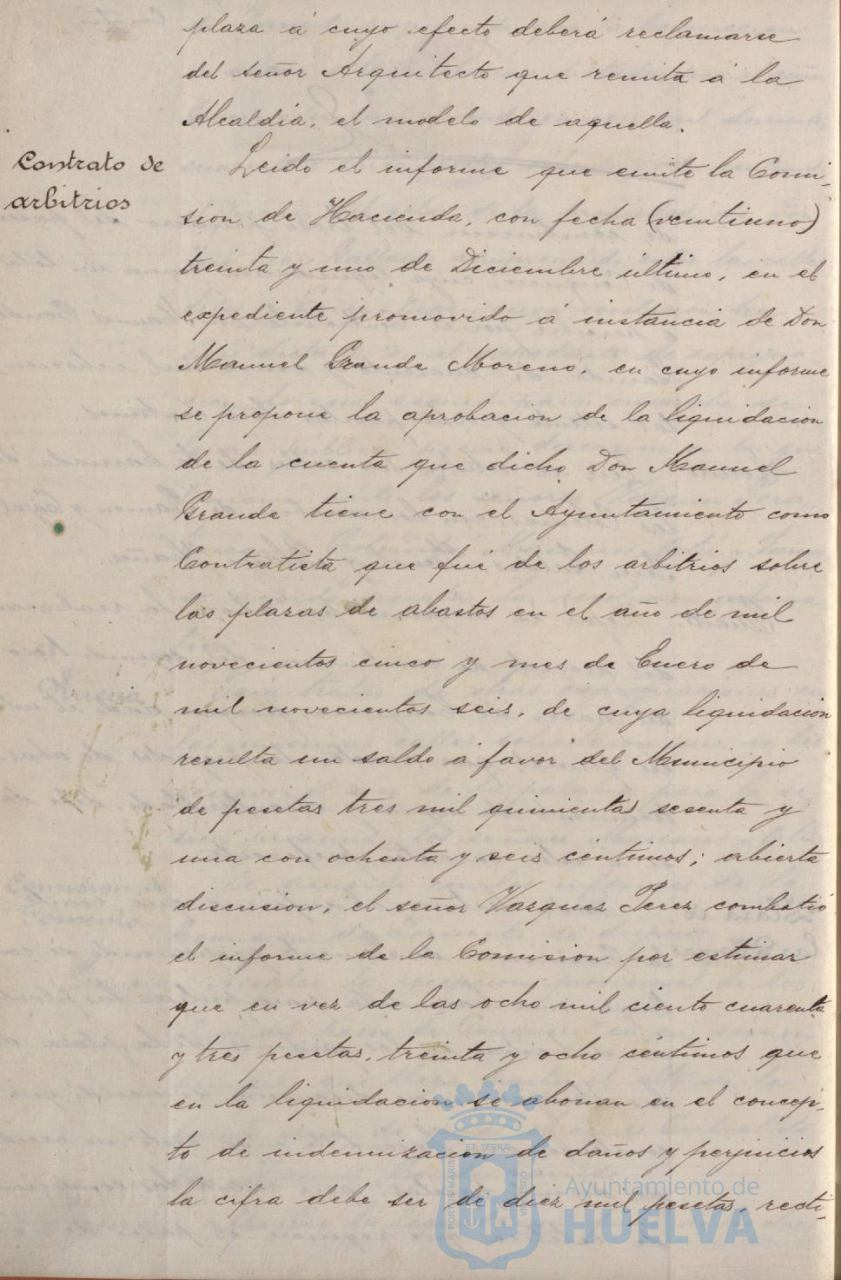 plaza á cuyo efecto deberá reclamarse
del señor Arquitecto que remita á la
Alcaldia, el modelo de aquella.
Contrato de
arbitrios
Leido el informe que emite la Comi-
sion de Hacienda, con fecha (veintiuno)
treinta y uno de Diciembre último, en el
expediente promovido á instancia de Don
Manuel Granda Moreno, en cuyo informe
se propone la aprobacion de la liquidacion
de la cuenta que dicho Don Manuel
Granda tiene con el Ayuntamiento como
Contratista que fué de los arbitrios sobre
las plazas de abastos en el año de mil
novecientos cinco y mes de Enero de
mil novecientos seis, de cuya liquidacion
resulta un saldo á favor del Municipio
de pesetas tres mil quinientas sesenta y
una con ochenta y seis céntimos; abierta
discusion, el señor Vazquez Perez combatió
el informe de la Comision por estimar
que en vez de las ocho mil ciento cuarenta
y tres pesetas, treinta y ocho céntimos que
en la liquidacion se abonan en el concep-
to de indemnizacion de daños y perjuicios
la cifra debe ser de diez mil pesetas, recti-
Ayuntamiento de
HUELVA